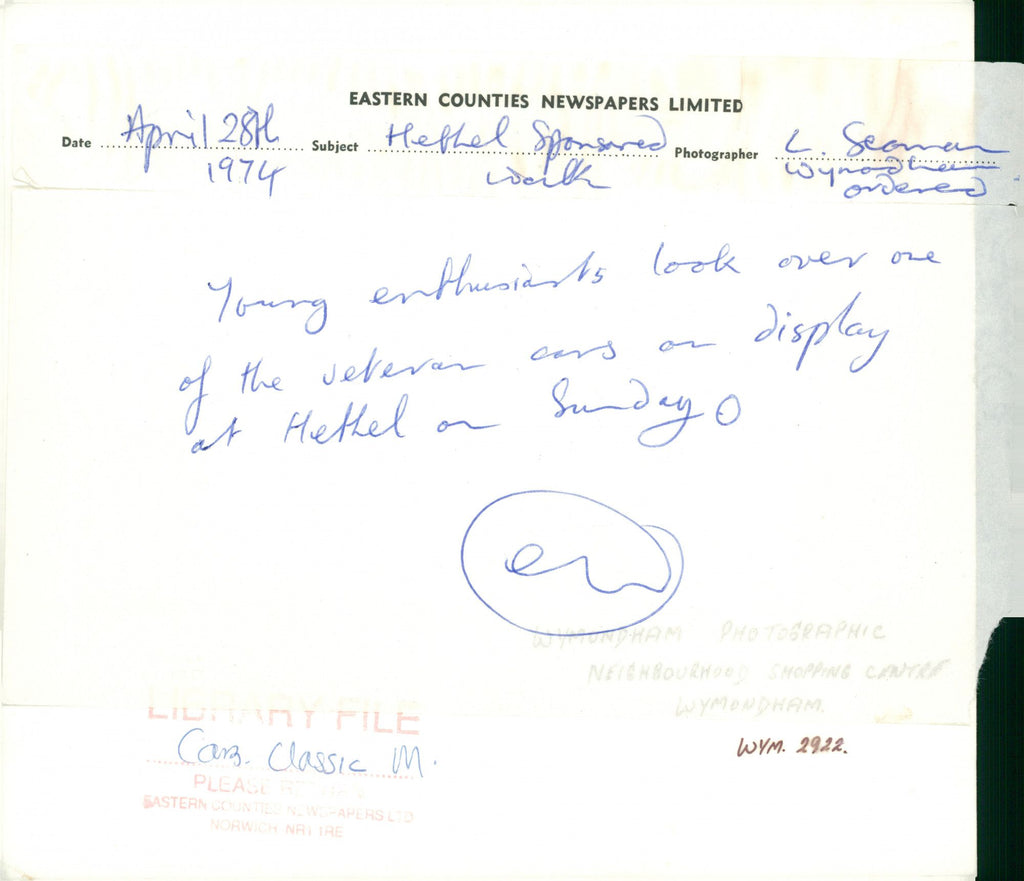 EASTERN COUNTIES NEWSPAPERS LIMITED
Date April 28th Subject Hethel Sponsored Photographer L. Seaman
1974 walk Wymondham
ordered
Young enthusiasts look over one
of the veteran cars on display
at Hethel on Sunday
WYMONDHAM PHOTOGRAPHIC
NEIGHBOURHOOD SHOPPING CENTRE
WYMONDHAM.
LIBRARY FILE
Cars. Classic M.
WYM. 2922.
PLEASE RETURN
EASTERN COUNTIES NEWSPAPERS LTD
NORWICH NR1 1RE